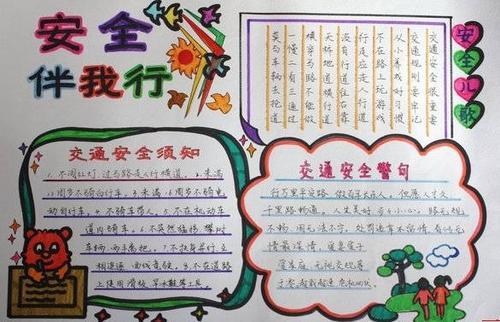 安全
伴我行
安全儿歌
交通安全很重要
交通规则要牢记
从小养成好习惯
不在路上玩游戏
行走应走人行道
没有行道往右靠
天桥地道横行道
横穿马路不能做
一慢二看三通过
莫与车辆去抢道
交通安全须知
1.不闯红灯,过马路走人行横道。2.未满
12周岁不骑自行车。3.未满16周岁不骑电
动自行车。4.不骑车带人。5.不在机动车
道内骑车。6.不突然猛拐,攀扶
车辆,两手离把。7.不扶身并行、互
相追逐、曲线竞驶。8.不在道路
上使用滑板、旱冰鞋等工具
交通安全警句
行万里平安路,做百年长在人。但愿人长久,
千里路畅通。人生美好,步步小心。路无规
不畅,国无法不宁。处罚违章不留情,看似无
情最深情。
无视交规等
超载超速,危机四伏